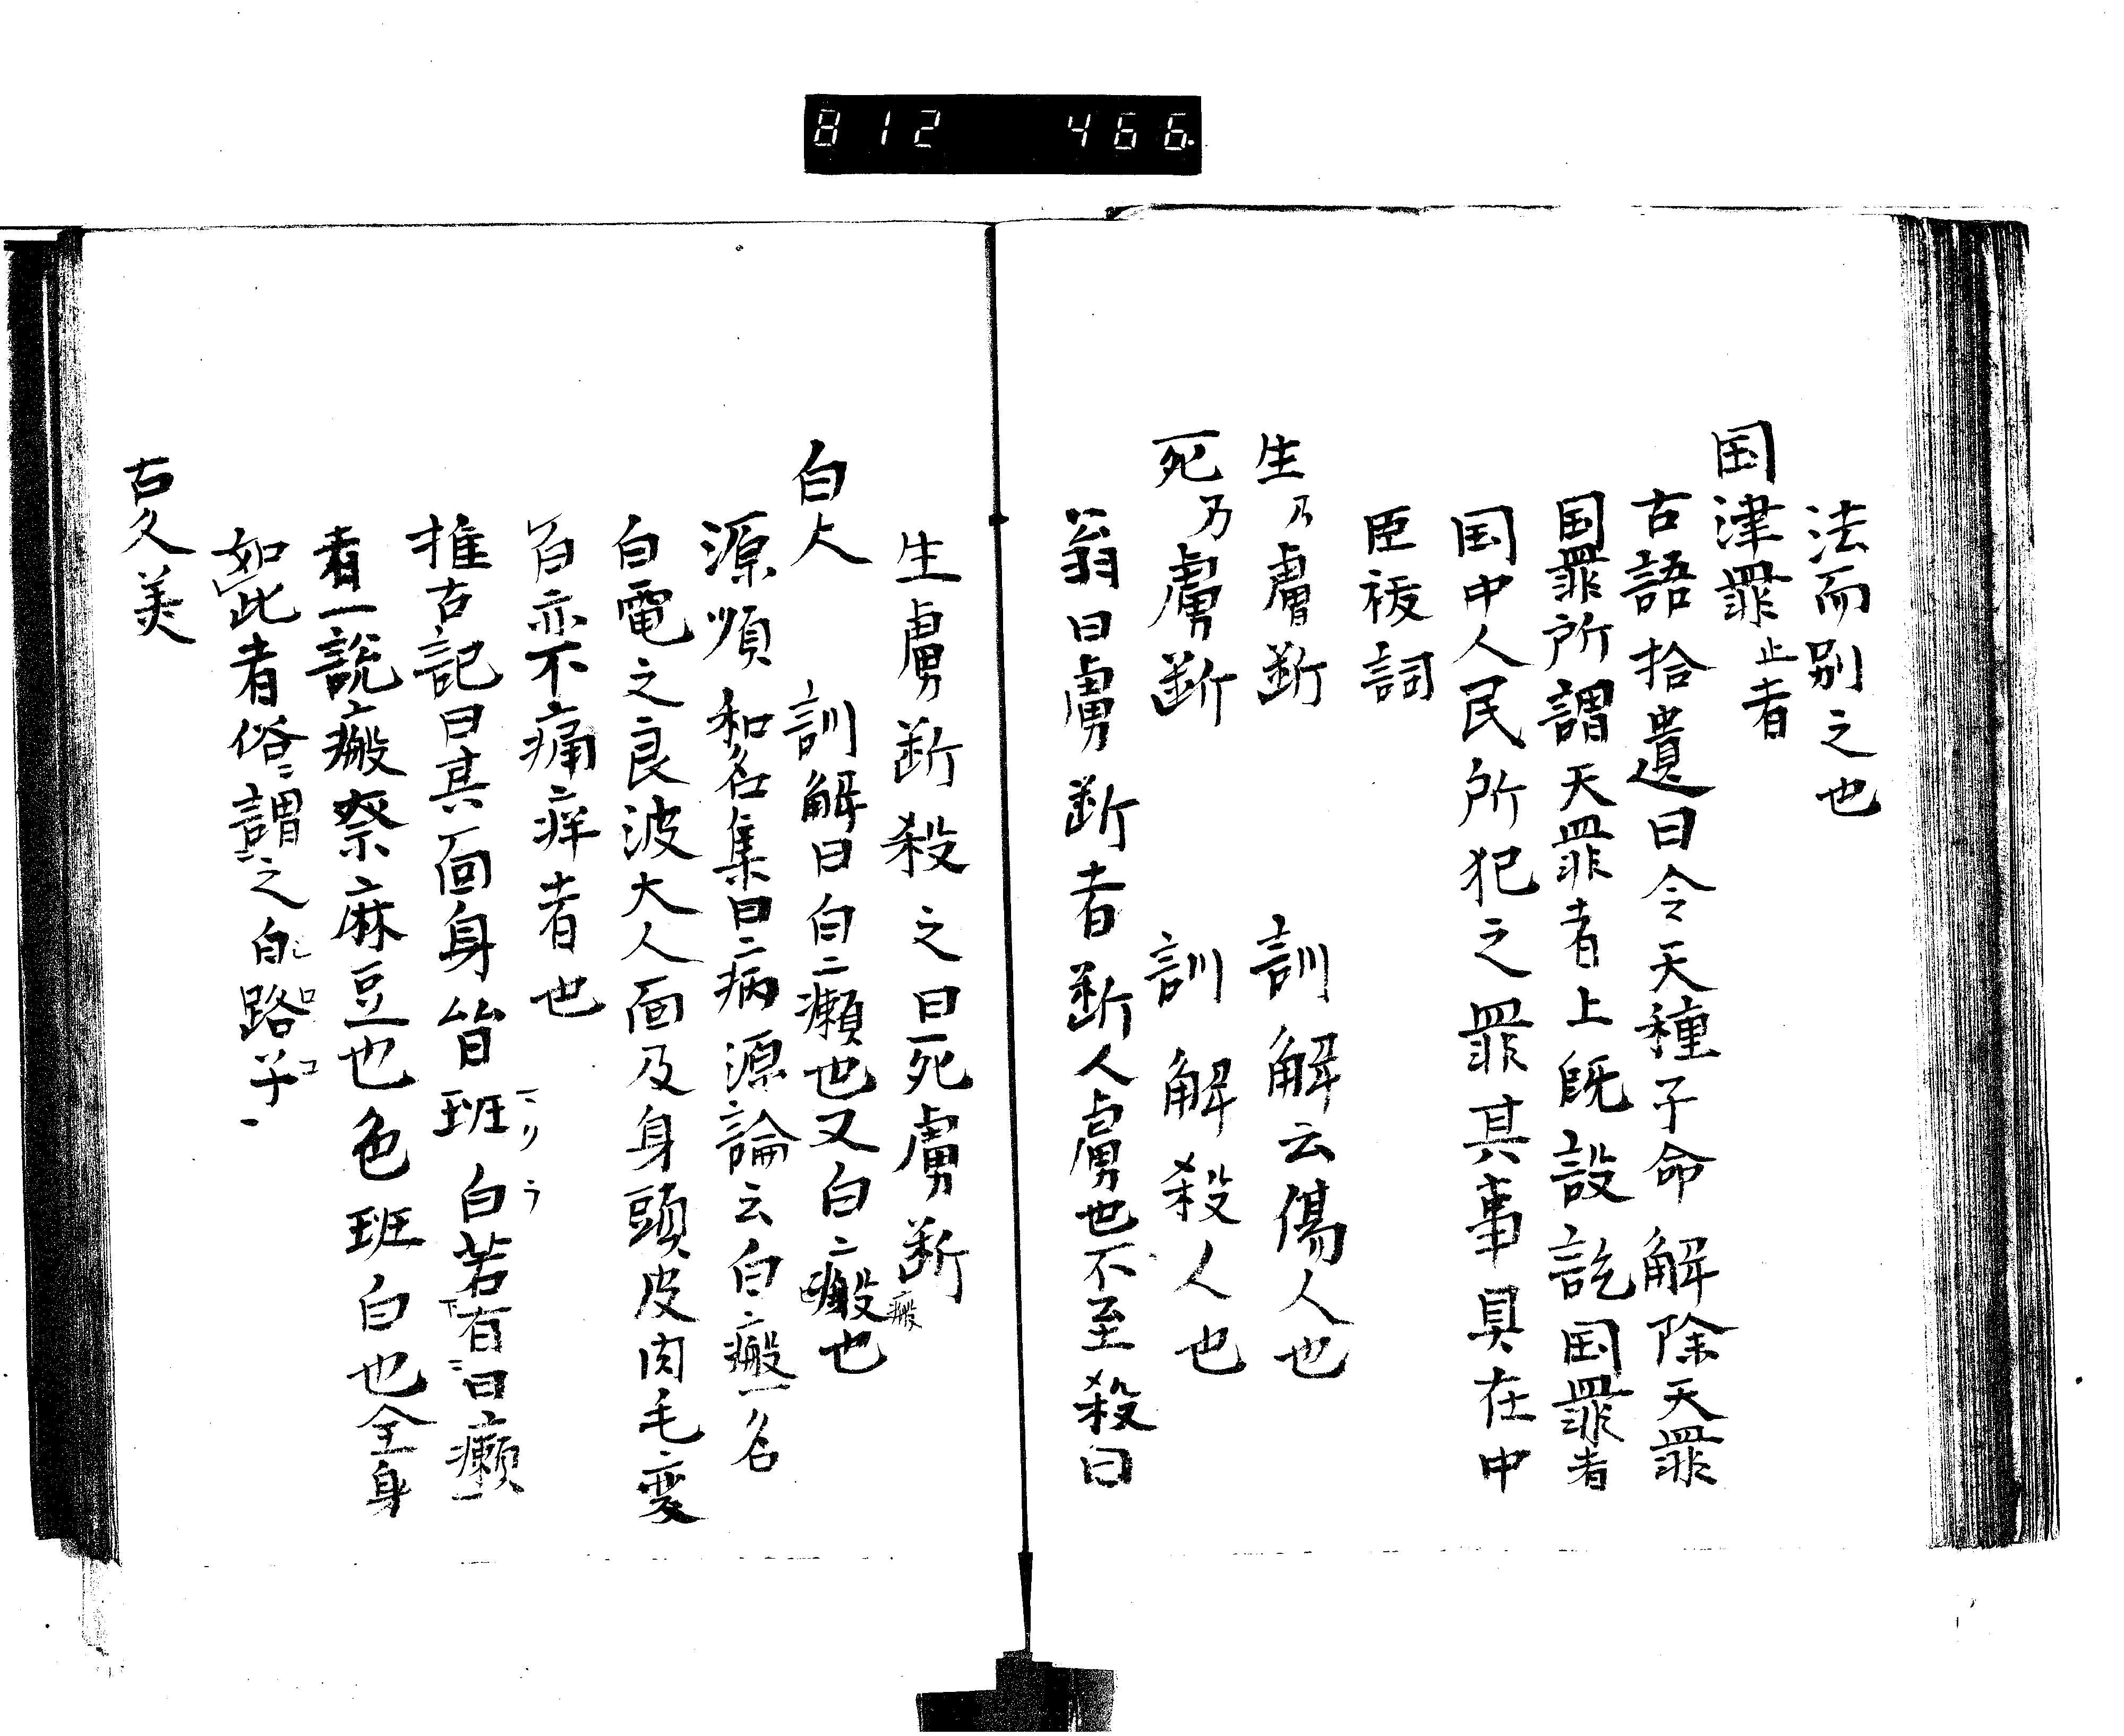 812 466
法而別之也
国津罪止者
古語拾遺曰令天種子命解除天罪
国罪所謂天罪者上既設訖国罪者
国中人民所犯之罪其事具在中
臣祓詞
生乃膚断 訓解云傷人也
死乃膚断 訓解殺人也
翁曰膚断者断人膚也不至殺曰
生膚断殺之曰死膚断
白人 訓解曰白癩也又白瘢也
瘢
源順和名集曰病源論云白瘢一名
白電之良波大人面及身頭皮肉毛変
白亦不痛痒者也
推古記曰其面身皆班白若有白癩
者一説瘢祭麻豆也色班白也全身
如此者俗謂之白路子
古久美